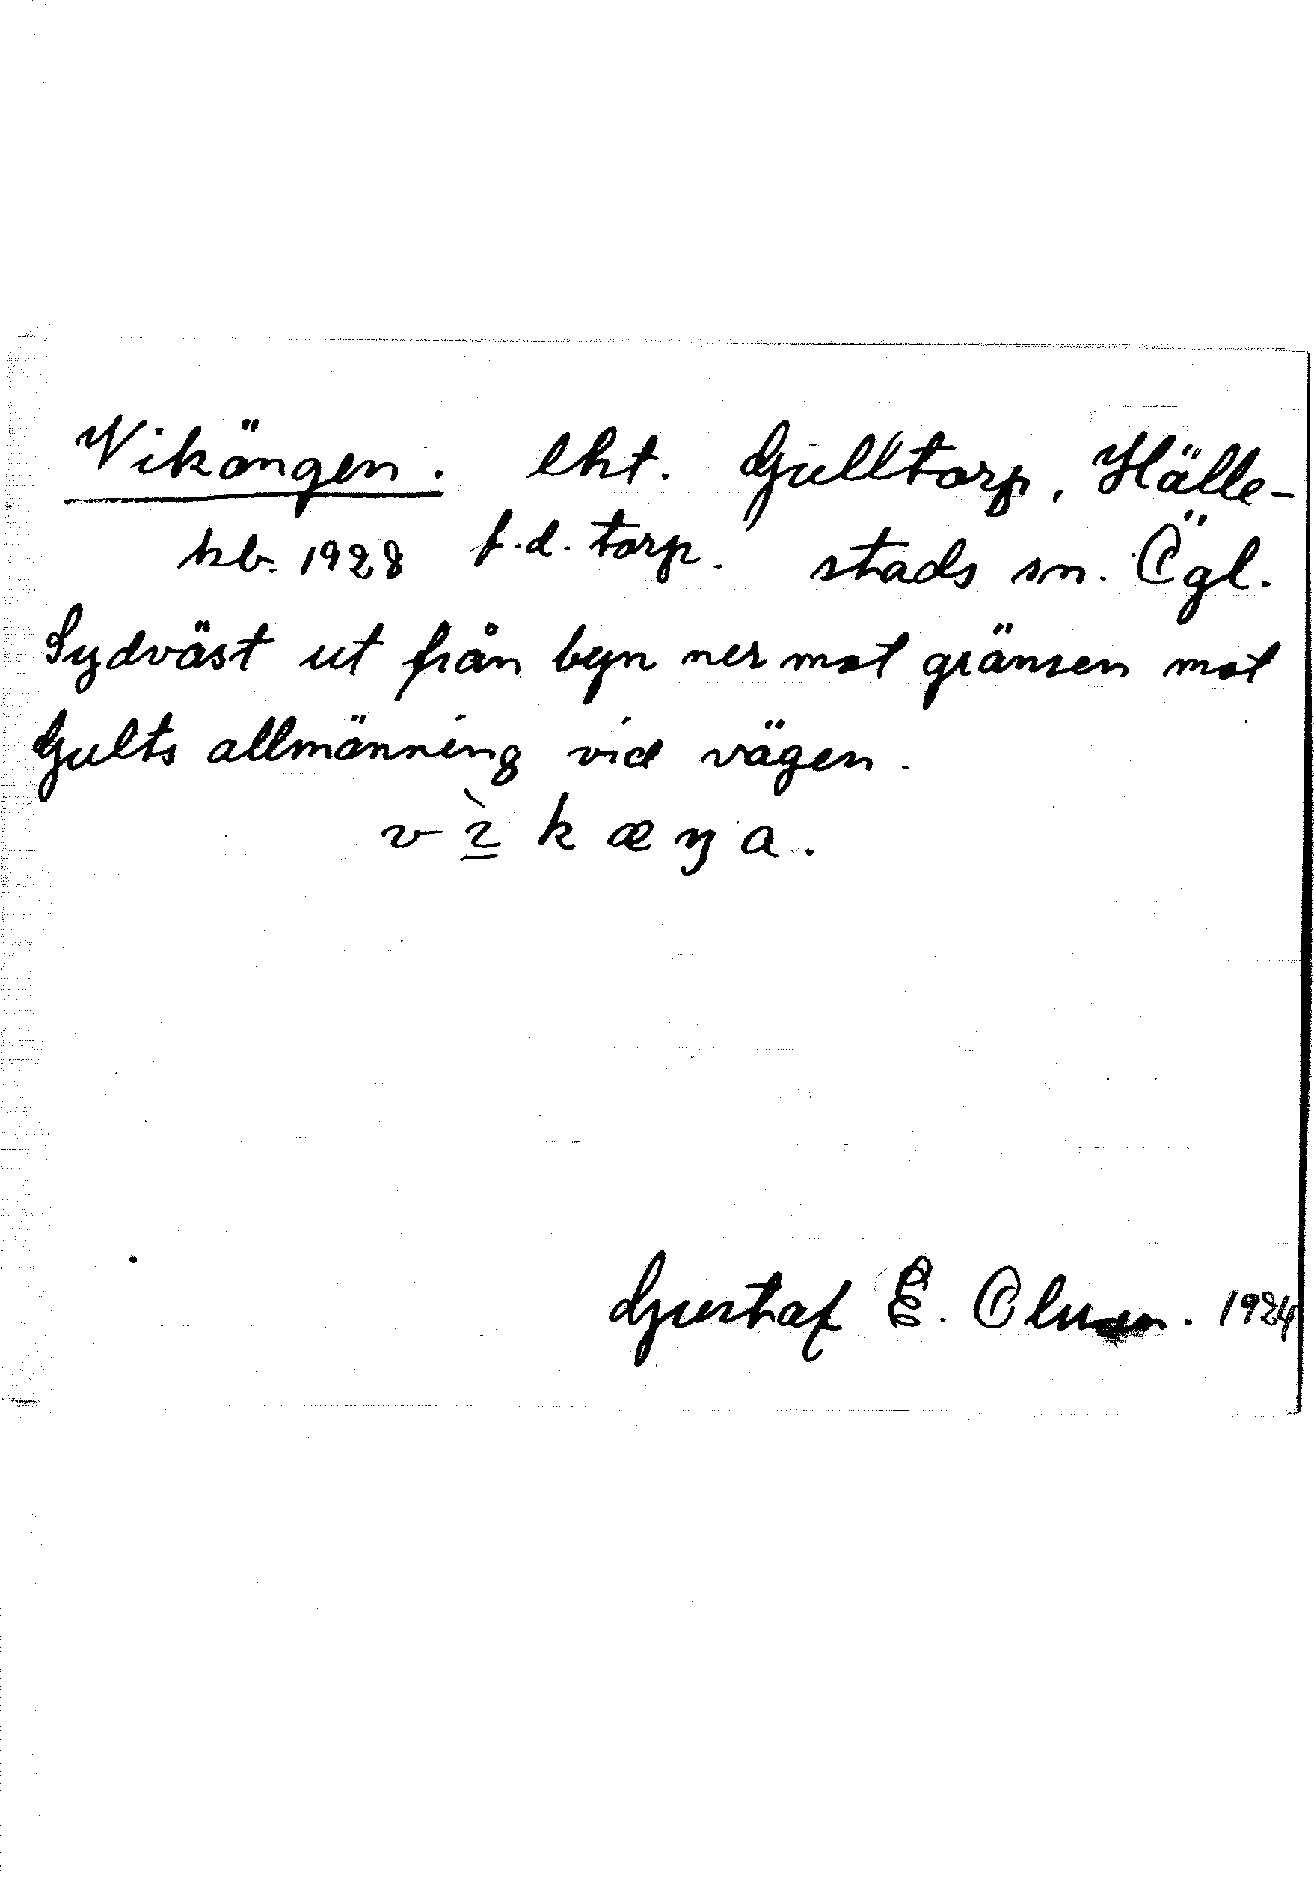 Vikängen. lht. Gulltorp, Hälle-
kb. 1928 f.d. torp. stads sn. Ögl.
Sydväst ut från byn ner mot gränsen mot
Gults allmänning vid vägen.
v ì k æ ŋ a.
Gustaf E. 1924